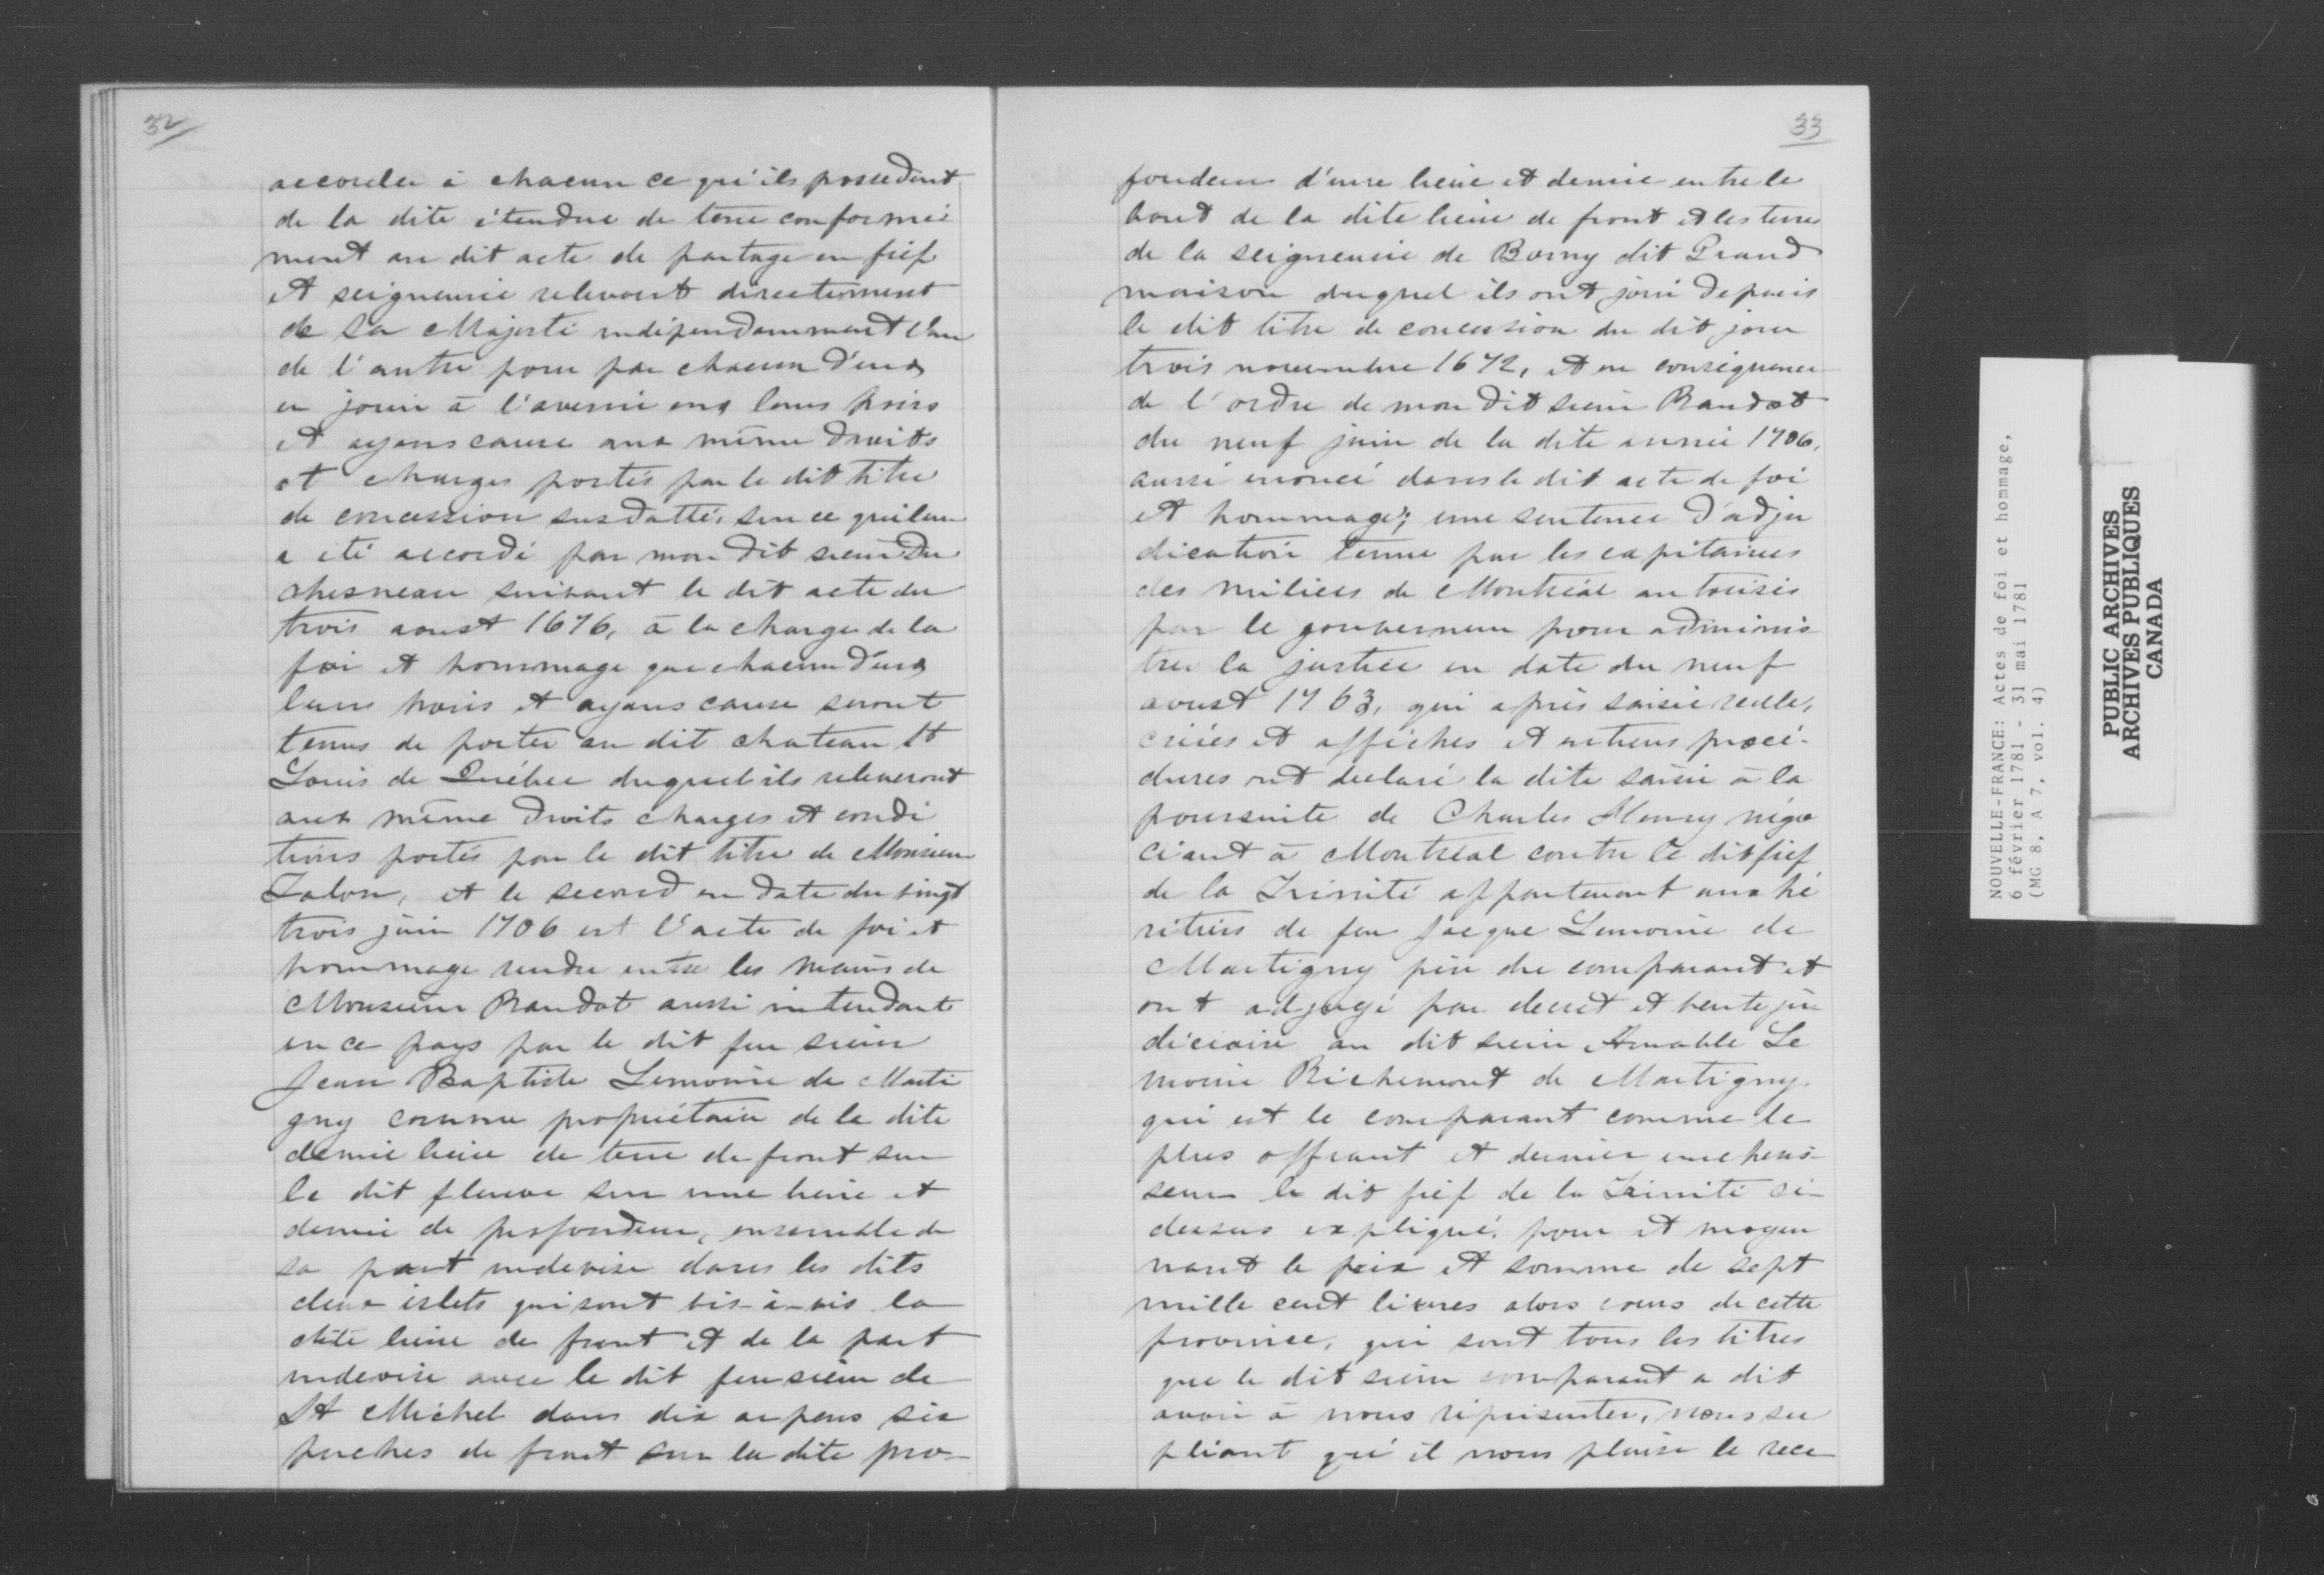 32
accorder à chacun ce qu'ils possedent
de la dite étendue de terre conformé
ment au dit acte de partage en fief
et seigneurie relevant directement
de Sa Majesté indépendamment l'un
de l'autre pour par chacun d'eux
en jouir à l'avenir eux leurs hoirs
et ayans cause aux même droits
et charges portés par le dit titre
de concession susdatté, sur ce qui leur
a été accordé par mon dit sieur Du
chesneau suivant le dit acte du
trois aoust 1676, à la charge de la
foi et hommage que chacun d'eux
leurs hoirs et ayans cause seront
tenus de porter au dit chateau St
Louis de Québec duquel ils releveront
aux même droits charges et condi
tions portés par le dit titre de Monsieur
Talon, et le second en date du vingt
trois juin 1706 est l'acte de foi et
hommage rendu entre les mains de
Monsieur Raudot aussi intendant
en ce pays par le dit feu sieur
Jean Baptiste Lemoine de Marti
gny comme propriétaire de la dite
demie lieue de terre de front sur
le dit fleuve sur une lieue et
demie de profondeur, ensemble de
sa part indevise dans les dits
deux islets qui sont vis-à-vis la
dite lieue de front et de la part
indevise avec le dit feu sieur de
St Michel dans dix arpens six
perches de front sur la dite pro-
33
fondeur d'une lieue et demie entre le
bout de la dite lieue de front et les terres
de la seigneurie de Borny dit Grand
maison duquel ils ont joui depuis
le dit titre de concession du dit jour
trois novembre 1672, et en conséquence
de l'ordre de mon dit sieur Raudot
du neuf juin de la dite année 1706,
aussi énoncé dans le dit acte de foi
et hommage; une sentence d'adju
dication tenue par les capitaines
des milices de Montréal autorisés
par le gouverneur pour adminis
trer la justice en date du neuf
aoust 1763, qui après saisie réelle,
criées et affiches et autres procé-
dures ont declaré la dite saisie à la
poursuite de Charles Henry négo
ciant à Montréal contre le dit fief
de la Trinité appartenant aux hé
ritiers de feu Jacque Lemoine de
Martigny père du comparant et
ont adjugé par decret et vente ju
diciaire au dit sieur Amable Le
moine Richemont de Martigny
qui est le comparant comme le
plus offrant et dernier encheris-
seur le dit fief de la Trinité ci-
dessus expliqué, pour et moyen
nant le prix et somme de sept
mille cent livres alors cours de cette
province, qui sont tous les titres
que le dit sieur comparant a dit
avoir à nous réprésenter, nous su
pliant qu'il nous plaise le rece
NOUVELLE-FRANCE: Actes de foi et hommage,
6 février 1781 - 31 mai 1781
(MG 8, A 7, vol. 4)
PUBLIC ARCHIVES
ARCHIVES PUBLIQUES
CANADA